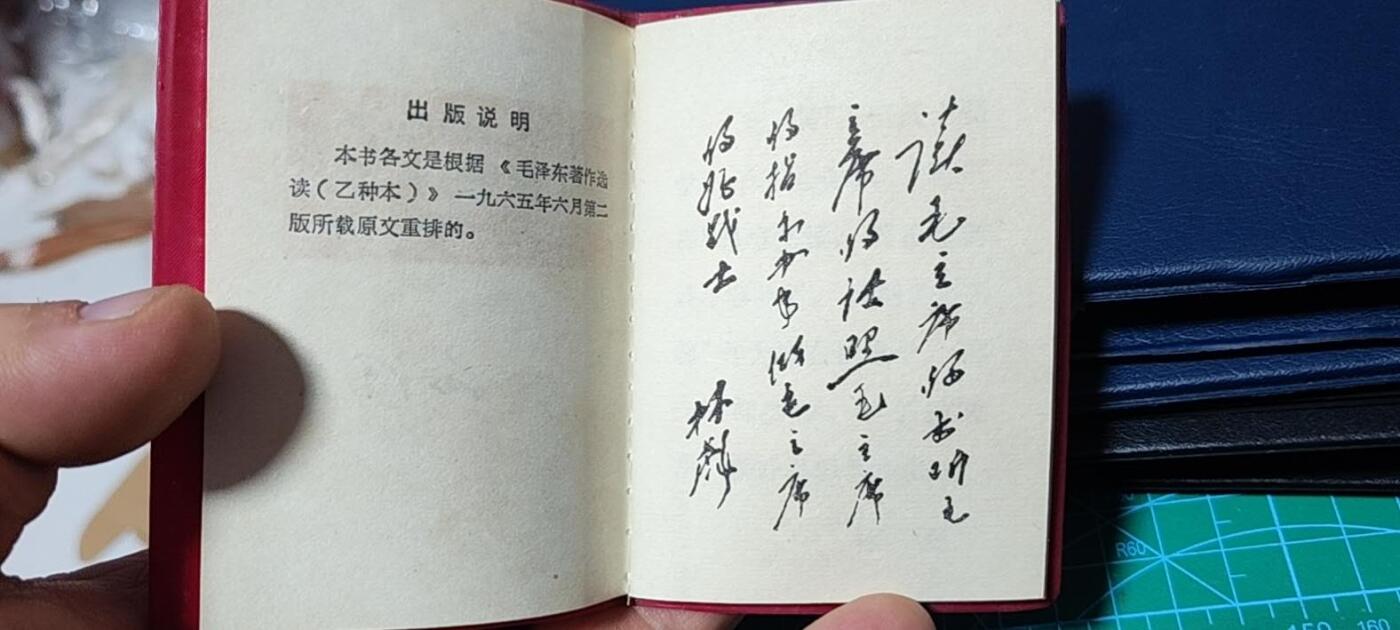 出版说明
本书各文是根据《毛泽东著作选
读（乙种本）》一九六五年六月第二
版所载原文重排的。
读毛主席的书听毛
主席的话照毛主席
的指示办事做毛主席
的好战士
林彪
R60
150
160